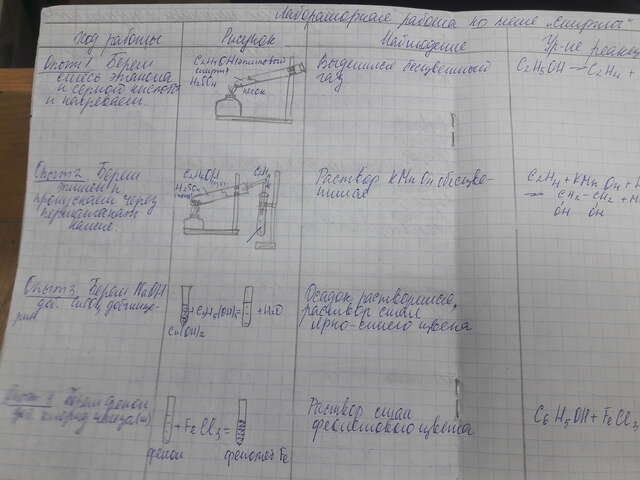 Лабораторная работа по теме „Спирты"
Ход работы
Рисунок
Наблюдение
Ур-ие реакц
Опыт 1 Берем
смесь этанола
и серной кислоты
и нагреваем.
C2H5OH этиловый
спирт
H2SO4
песок
Выделился бесцветный
газ
C2H5OH → C2H4 +
Опыт 2 Берем
этилен и
пропускаем через
перманганат
калия.
C2H5OH
H2SO4
C2H4
Раствор KMnO4 обесцве-
тился
C2H4 + KMnO4 +
→ CH2 – CH2 + Mn
OH OH
Опыт 3 Берем NaOH
доб. CuSO4 доб глице-
рин
+ C3H5(OH)3 =
+ H2O
Cu(OH)2
Осадок растворился,
раствор стал
ярко-синего цвета
Опыт 4 Берем фенол
доб. хлорид железа (III)
+ FeCl3 =
фенол
фенолят Fe
Раствор стал
фиолетового цвета
C6H5OH + FeCl3